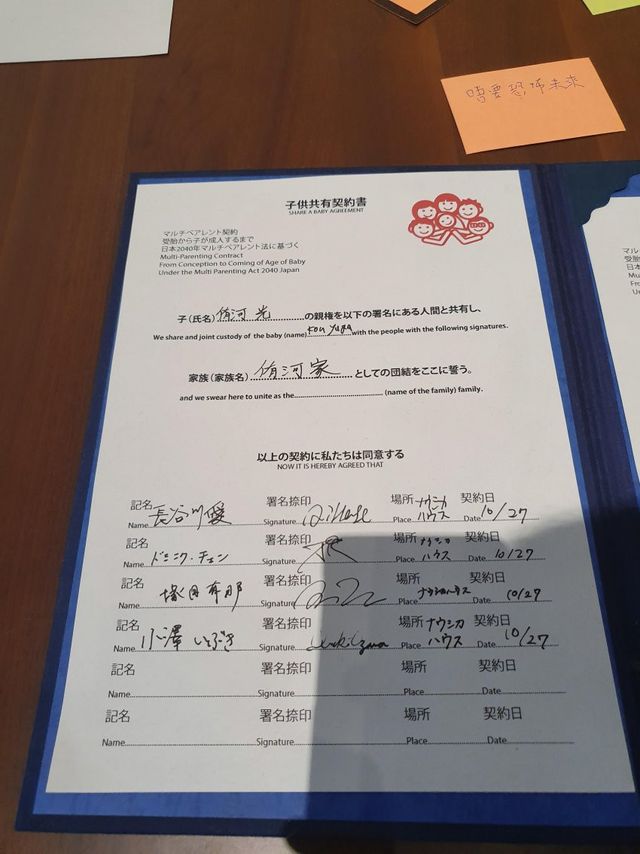 子供共有契約書
SHARE A BABY AGREEMENT
マルチペアレント契約
受胎から子が成人するまで
日本2040年マルチペアレント法に基づく
Multi-Parenting Contract
From Conception to Coming of Age of Baby
Under the Multi Parenting Act 2040 Japan
子(氏名) 侑河 光 の親権を以下の署名にある人間と共有し、
We share and joint custody of the baby (name) Kou Yuga with the people with the following signatures.
家族(家族名) 侑河家 としての団結をここに誓う。
and we swear here to unite as the (name of the family) family.
以上の契約に私たちは同意する
NOW IT IS HEREBY AGREED THAT
記名 長谷川愛 署名捺印 場所 ナウシカハウス 契約日 10/27
Name Signature Place Date
記名 ドミニク・チェン 署名捺印 場所 ナウシカハウス 契約日 10/27
Name Signature Place Date
記名 塚田有那 署名捺印 場所 ナウシカハウス 契約日 10/27
Name Signature Place Date
記名 小澤いぶき 署名捺印 場所 ナウシカハウス 契約日 10/27
Name Signature Place Date
記名 署名捺印 場所 契約日
Name Signature Place Date
記名 署名捺印 場所 契約日
Name Signature Place Date